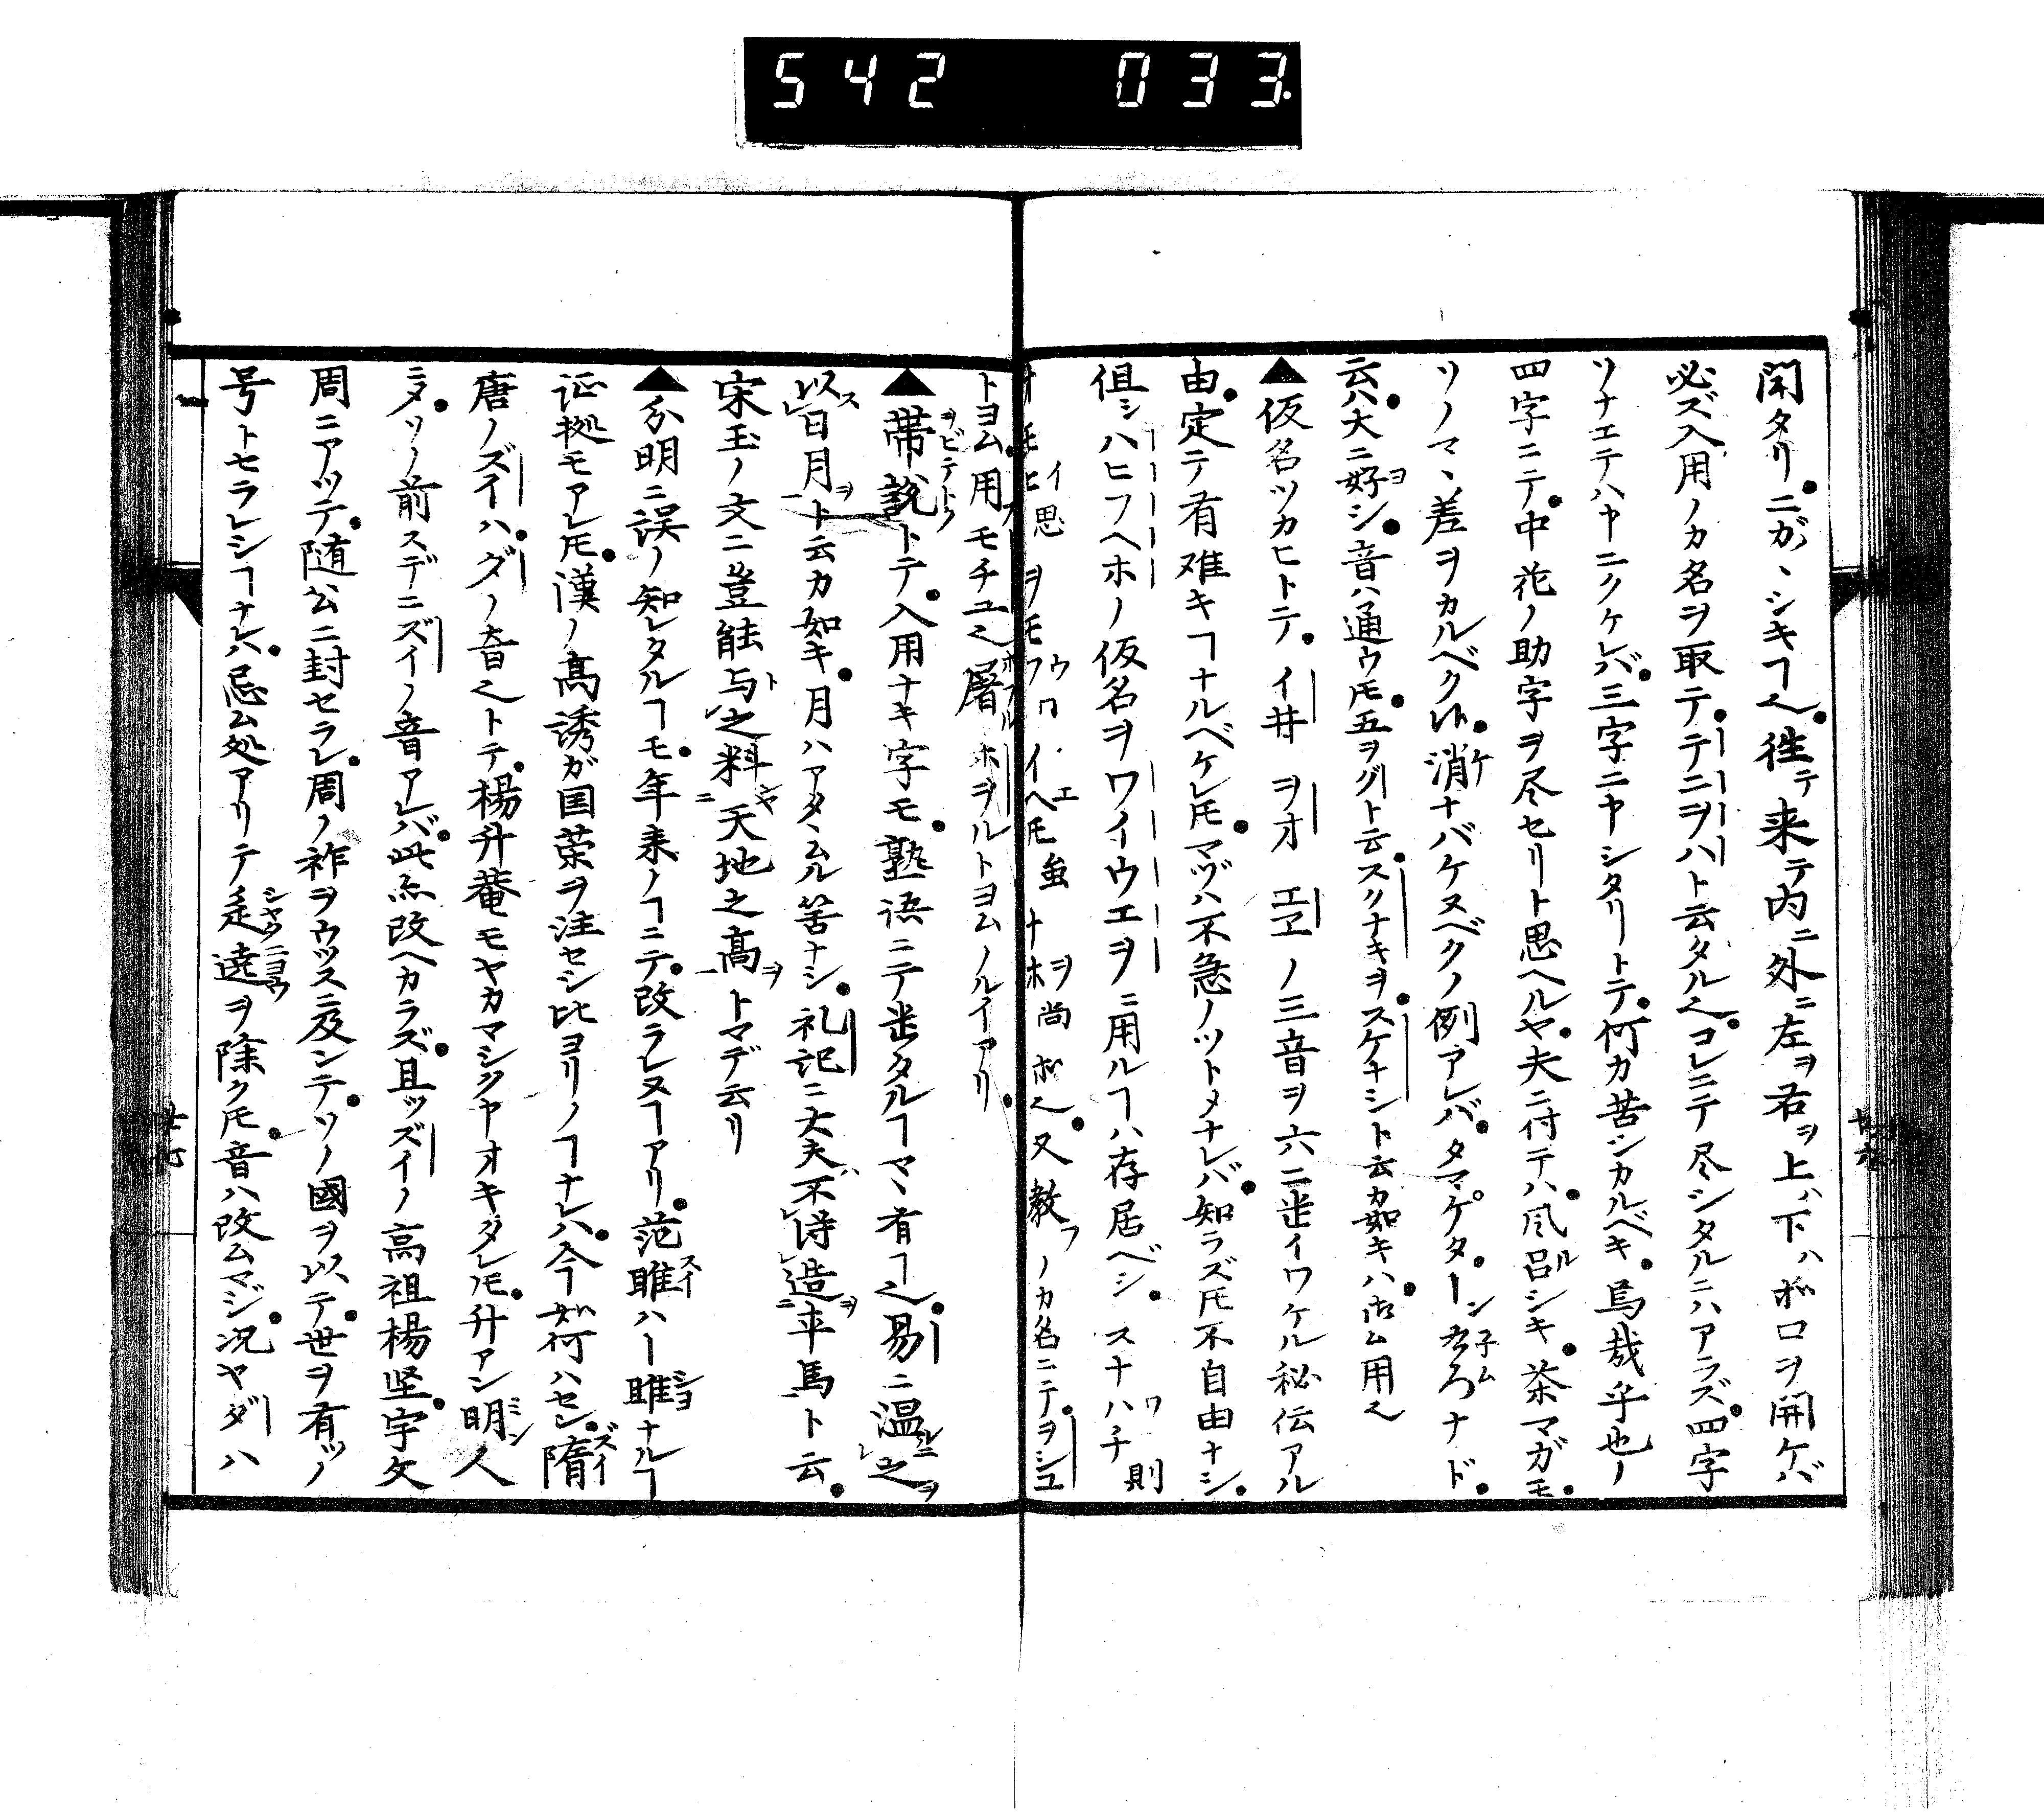 542 033.
開タリ。ニガヽシキヿ也。往テ来テ内ニ外ニ左ヲ右ヲ上ハ下ハボロヲ開ケバ
必ズ入用ノカ名ヲ取テ。テニヲハト云タル也。コレニテ尽シタルニハアラズ。四字
ツナエテハヤニクケレバ。三字ニヤシタリトテ。何カ苦シカルベキ。焉哉乎也ノ
四字ニテ。中花ノ助字ヲ尽セリト思ヘルヤ。夫ニ付テハ。風呂シキ。茶マガモ。
ソノマヽ差ヲカルベク㆑ト。消ナバケヌベクノ例アレバ。タマゲタ。ーンネムろナド。
云ハ。大ニ好シ。音ハ通ウ𪜈。五ヲグト云。スクナキヲ。スケナシト云カ如キハ。古ム用也
▲仮名ツカヒトテ。イ井 ヲオ エヱ ノ三音ヲ六ニ坐イワケル秘伝アル
由。定テ有难キヿナルベケレ𪜈。マヅハ不急ノツトメナレバ。知ラズ𪜈不自由ナシ。
倶シハヒフヘホノ仮名ヲワイウエヲニ用ルヿハ存居ベシ。スナハチ 則
ナ𪜈ヒ思 ヲモフ イヘ𪜈虽 ナホ尚ボ也。又教フノカ名ニテ。ヲシユ
トヨム。用モチユ也屠ホフル ホヲルトヨムノルイアリ。
▲帯説トテ。入用ナキ字モ。熟語ニテ坐タルヿマヽ有ヿ也。易ニ温之
以日月ト云カ如キ。月ハアタヽムル筈ナシ。礼記ニ大夫不得造車馬ト云。
宋玉ノ文ニ豈能与之料天地之高トマデ云リ
▲分明ニ誤ノ知レタルヿモ。年来ノヿニテ。改ラレヌヿアリ。范睢ハー雎ナルヿ
証拠モアレ𪜈。漢ノ高誘ガ国策ヲ注セシ比ヨリノヿナレハ。今如何ハセン。隋
唐ノズイハ。ダノ音也トテ。楊升菴モヤカマシクヤオキダレ𪜈。升アン明人
ニメ。ソノ前スデニズイノ音アレバ。此亦改ヘカラズ。且ッズイノ高祖楊坚。宇文
周ニアツテ。随公ニ封セラレ。周ノ祚ヲウツスニ及ンテ。ソノ國ヲ以テ。世ヲ有ツノ
号トセラレシヿナレハ。忌ム処アリテ辵遶ヲ除ク𪜈。音ハ改ムマジ。况ヤダハ